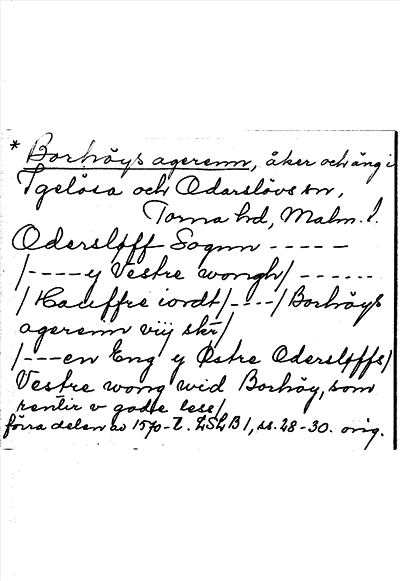 * Borhöys agerenn, åker och äng i
Igelösa och Odarslövs sn,
Torna hd, Malm. l.
Odersløff Sognn - - - - -
/- - - - y Vestre wongh/ - - - - - -
/ Hauffre iordt/- - - -/ Borhöys
agerenn viij skr/
/- - - en Eng y Østre Odersløffs/
Vestre wong wid Borhöy, som
rentir v gode lese/
förra delen av 1570-t. LSLB 1, ss. 28-30. orig.